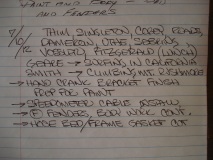 PAINT AND BODY - 
AND FENDERS
7/10/12 THIM, SINGLETON, COREY, EVANS,
DAMERON, UTBE, SOBKINS,
VOSBURG, FITZGERALD (LUNCH)
GOPHER → SURFING IN CALIFORNIA
SMITH → CLIMBING MT. RUSHMORE
→ HAND CRANK BRACKET FINISH
PREP FOR PAINT
→ SPEEDOMETER CABLE INSTALL
→ FENDERS, BODY WORK CONT.
→ HOSE BED/FRAME GASKET CUT